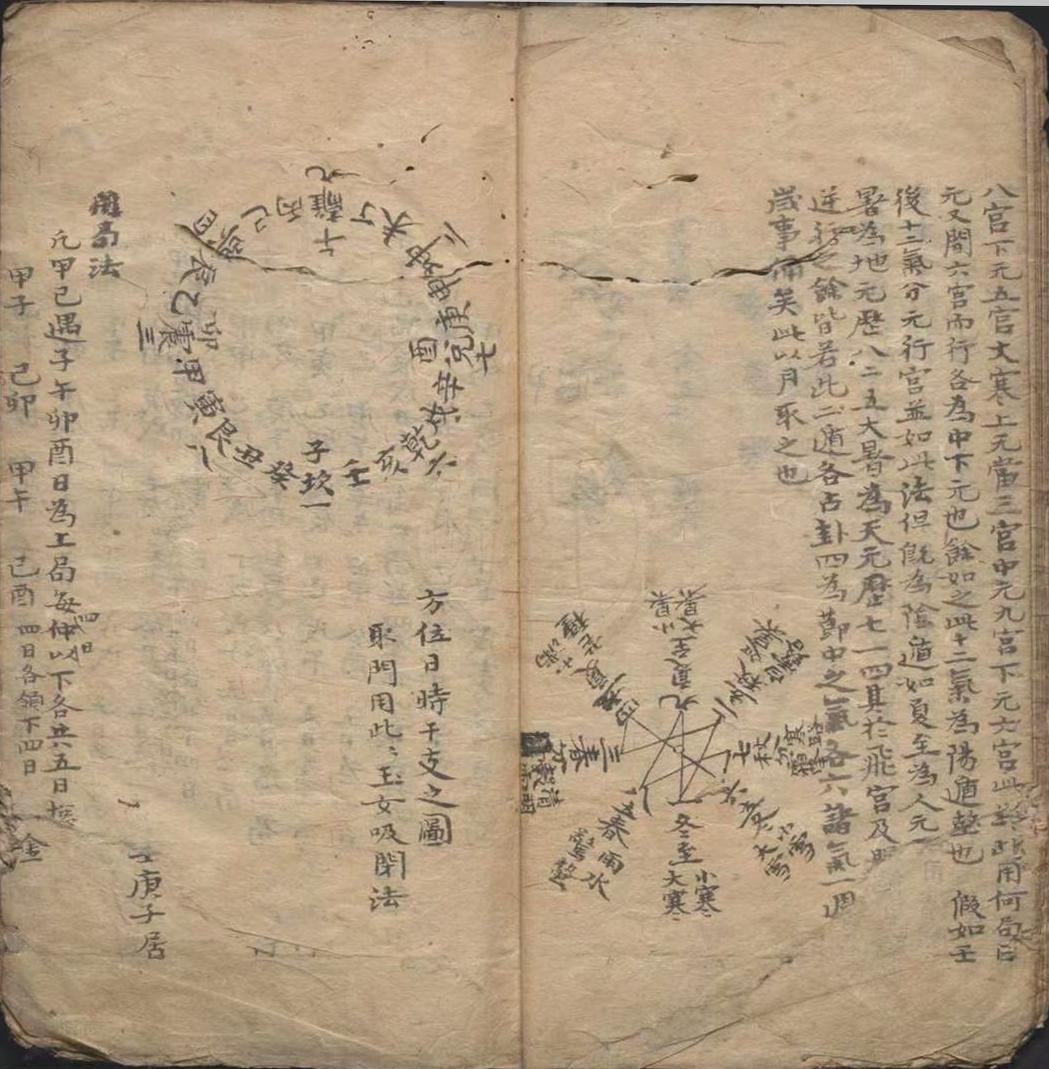 八宮下元五宮大寒上元當三宮中元九宮下元六宮此
用何局
元又間六宮而行各為中下元也餘如之此十二氣為陽遁
也 假如
後十二氣分元行宮並如此法但既為陰遁如夏至為人元
暑為地元歷八二五大暑為天元歷七一四其於飛宮及
逆行之餘皆若此二遁各占卦四為節中之氣各六諸氣一週
歲事備矣此以月取之也
九夏至小暑大暑
二立秋
七秋分寒露霜降
六立冬小雪大雪
一冬至小寒大寒
八立春雨水驚蟄
三春分清明穀雨
四立夏小滿芒種
方位日時干支之圖
取門用此玉女吸閉法
九離午
丁未坤二
申庚
酉兌七
辛戌
乾六
亥壬
子坎一
癸丑艮八
寅甲
卯震三
乙辰
四
巳丙
庚子居
用局法
凡甲己遇子午卯酉日為上局每仲
四日
以下各共五日
甲子 己卯 甲午 己酉 四日各領下四日